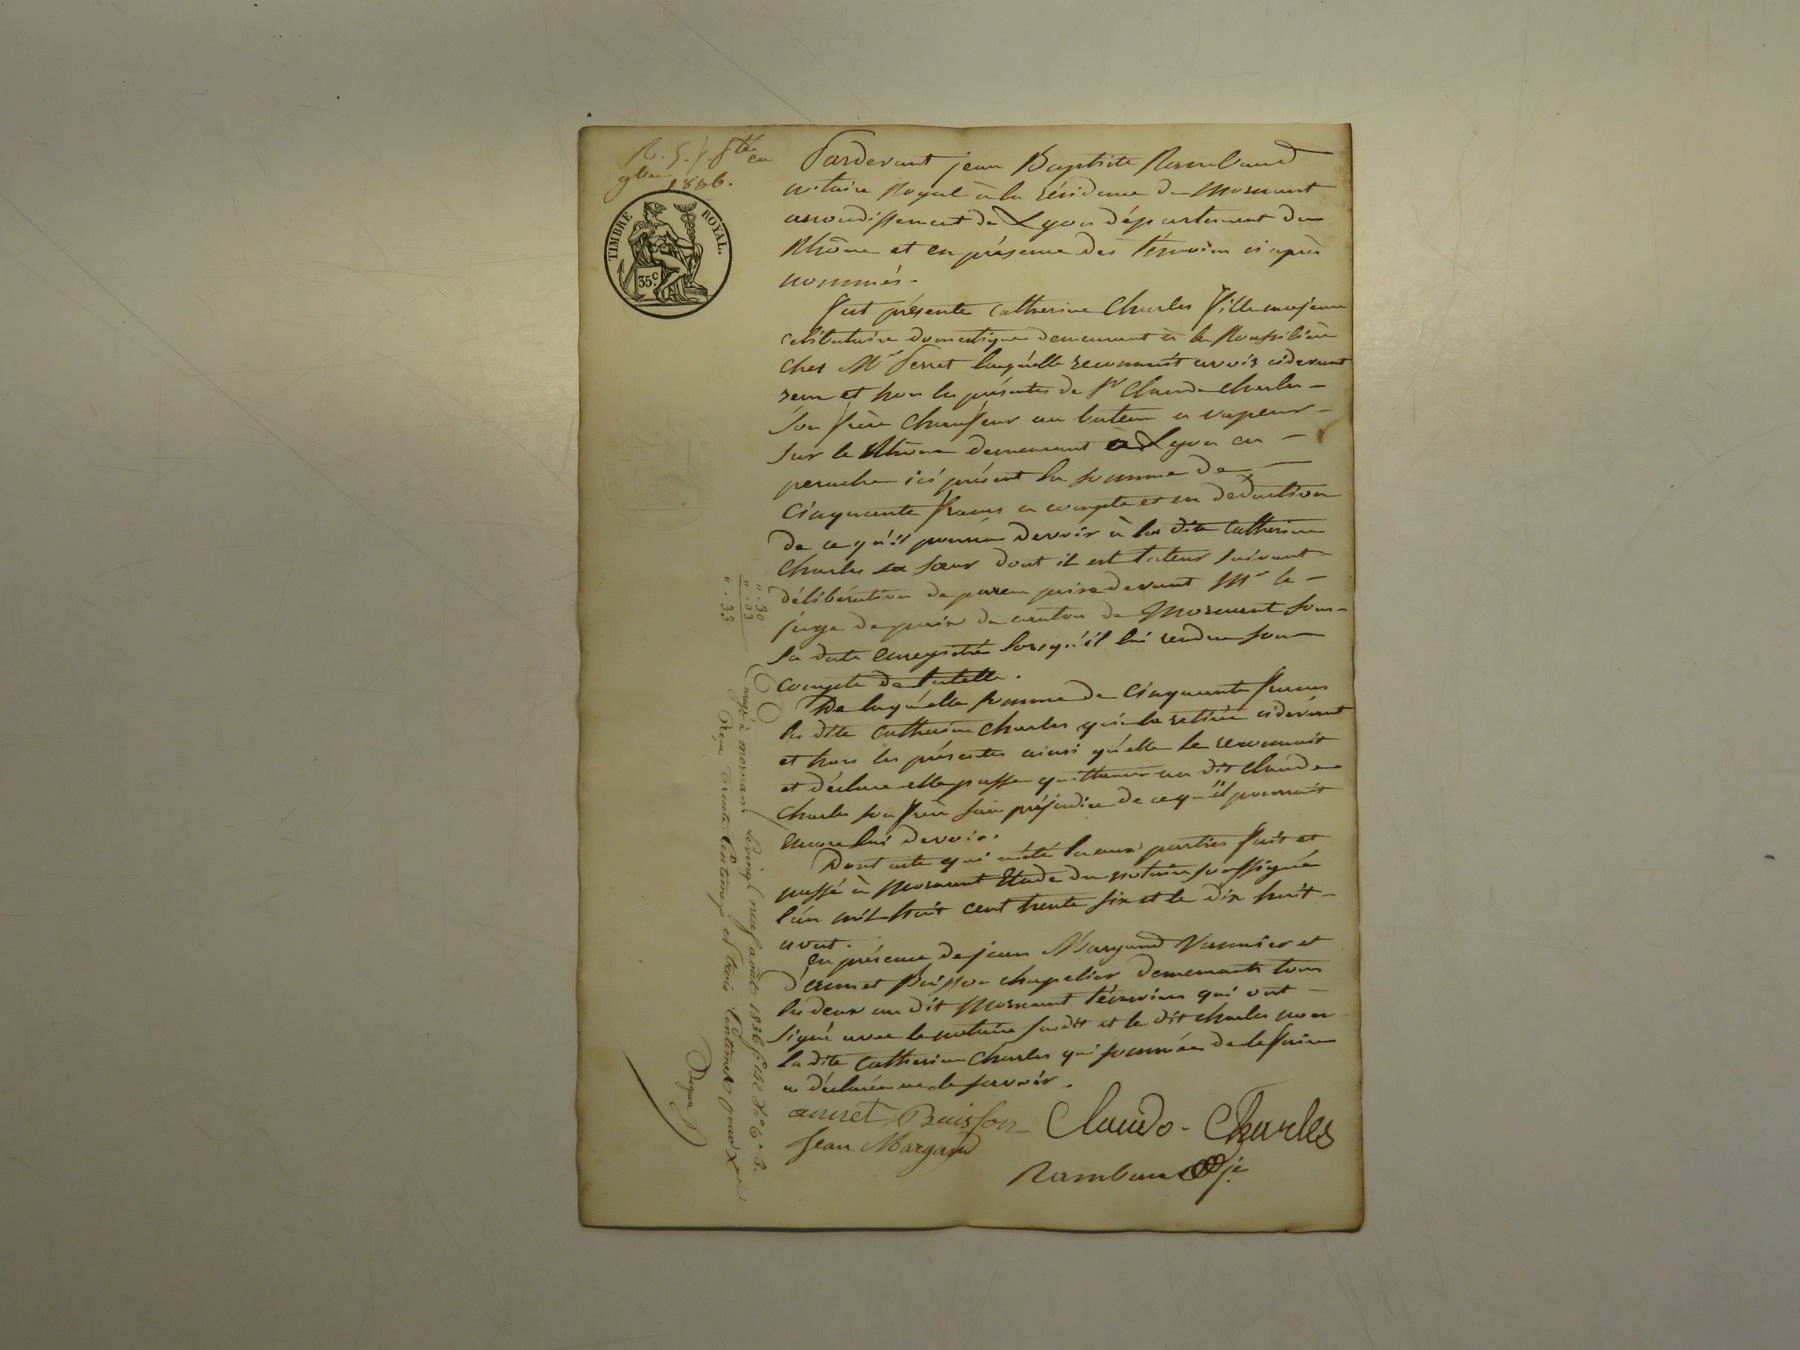 R. G. f. gtté en
9bre 1836.
TIMBRE ROYAL.
35 c.
Pardevant jean Baptiste Rambaud
notaire Royal à la résidence de Mornant
arrondissement de Lyon département du
Rhône et en présence des témoins ci après
nommés.
Fut présente Catherine Charles fille majeure
célibataire domestique demeurant à la Roussilière
chez Mr Perret laquelle reconnait avoir cidevant
reçu et hors les présentes de Sr Claude Charles
son frère Chauffeur au bateau a vapeur
sur le Rhône demeurant à Lyon en
perrache ici présent la somme de
Cinquante francs a compte et en déduction
de ce qu'il pourra devoir à la dite Catherine
Charles sa sœur dont il est tuteur suivant
délibération de parens prise devant Mr le
juge de paix du canton de Mornant sous
sa date enregistrée lorsqu'il lui rendra son
compte de tutelle.
De laquelle somme de cinquante francs
la dite Catherine Charles qui l'a retirée cidevant
et hors les présentes ainsi qu'elle le reconnait
et déclare elle passe quittance au dit Claude
Charles son frère sans préjudice de ce qu'il pourrait
encore lui devoir.
Dont acte qui a été lu aux parties fait et
passé à Mornant Etude du notaire soussigné
l'an mil huit cent trente six et le dix huit
aout.
En présence de jean Margand Vannier et
d'ennet Buisson chapelier demeurants tous
les deux au dit Mornant témoins qui ont
signé avec le notaire susdit et le dit Charles non
la dite Catherine Charles qui sommée de le faire
a déclaré ne le savoir.
Buisson
Claude - Charles
Jean Margand
Rambaud
" . 30
" . 03
" . 33
Enregé à mornant le vingt neuf août 1836 fo 142 Ro Ce 3.
Reçu trente Centimes et trois Centimes pour Xme